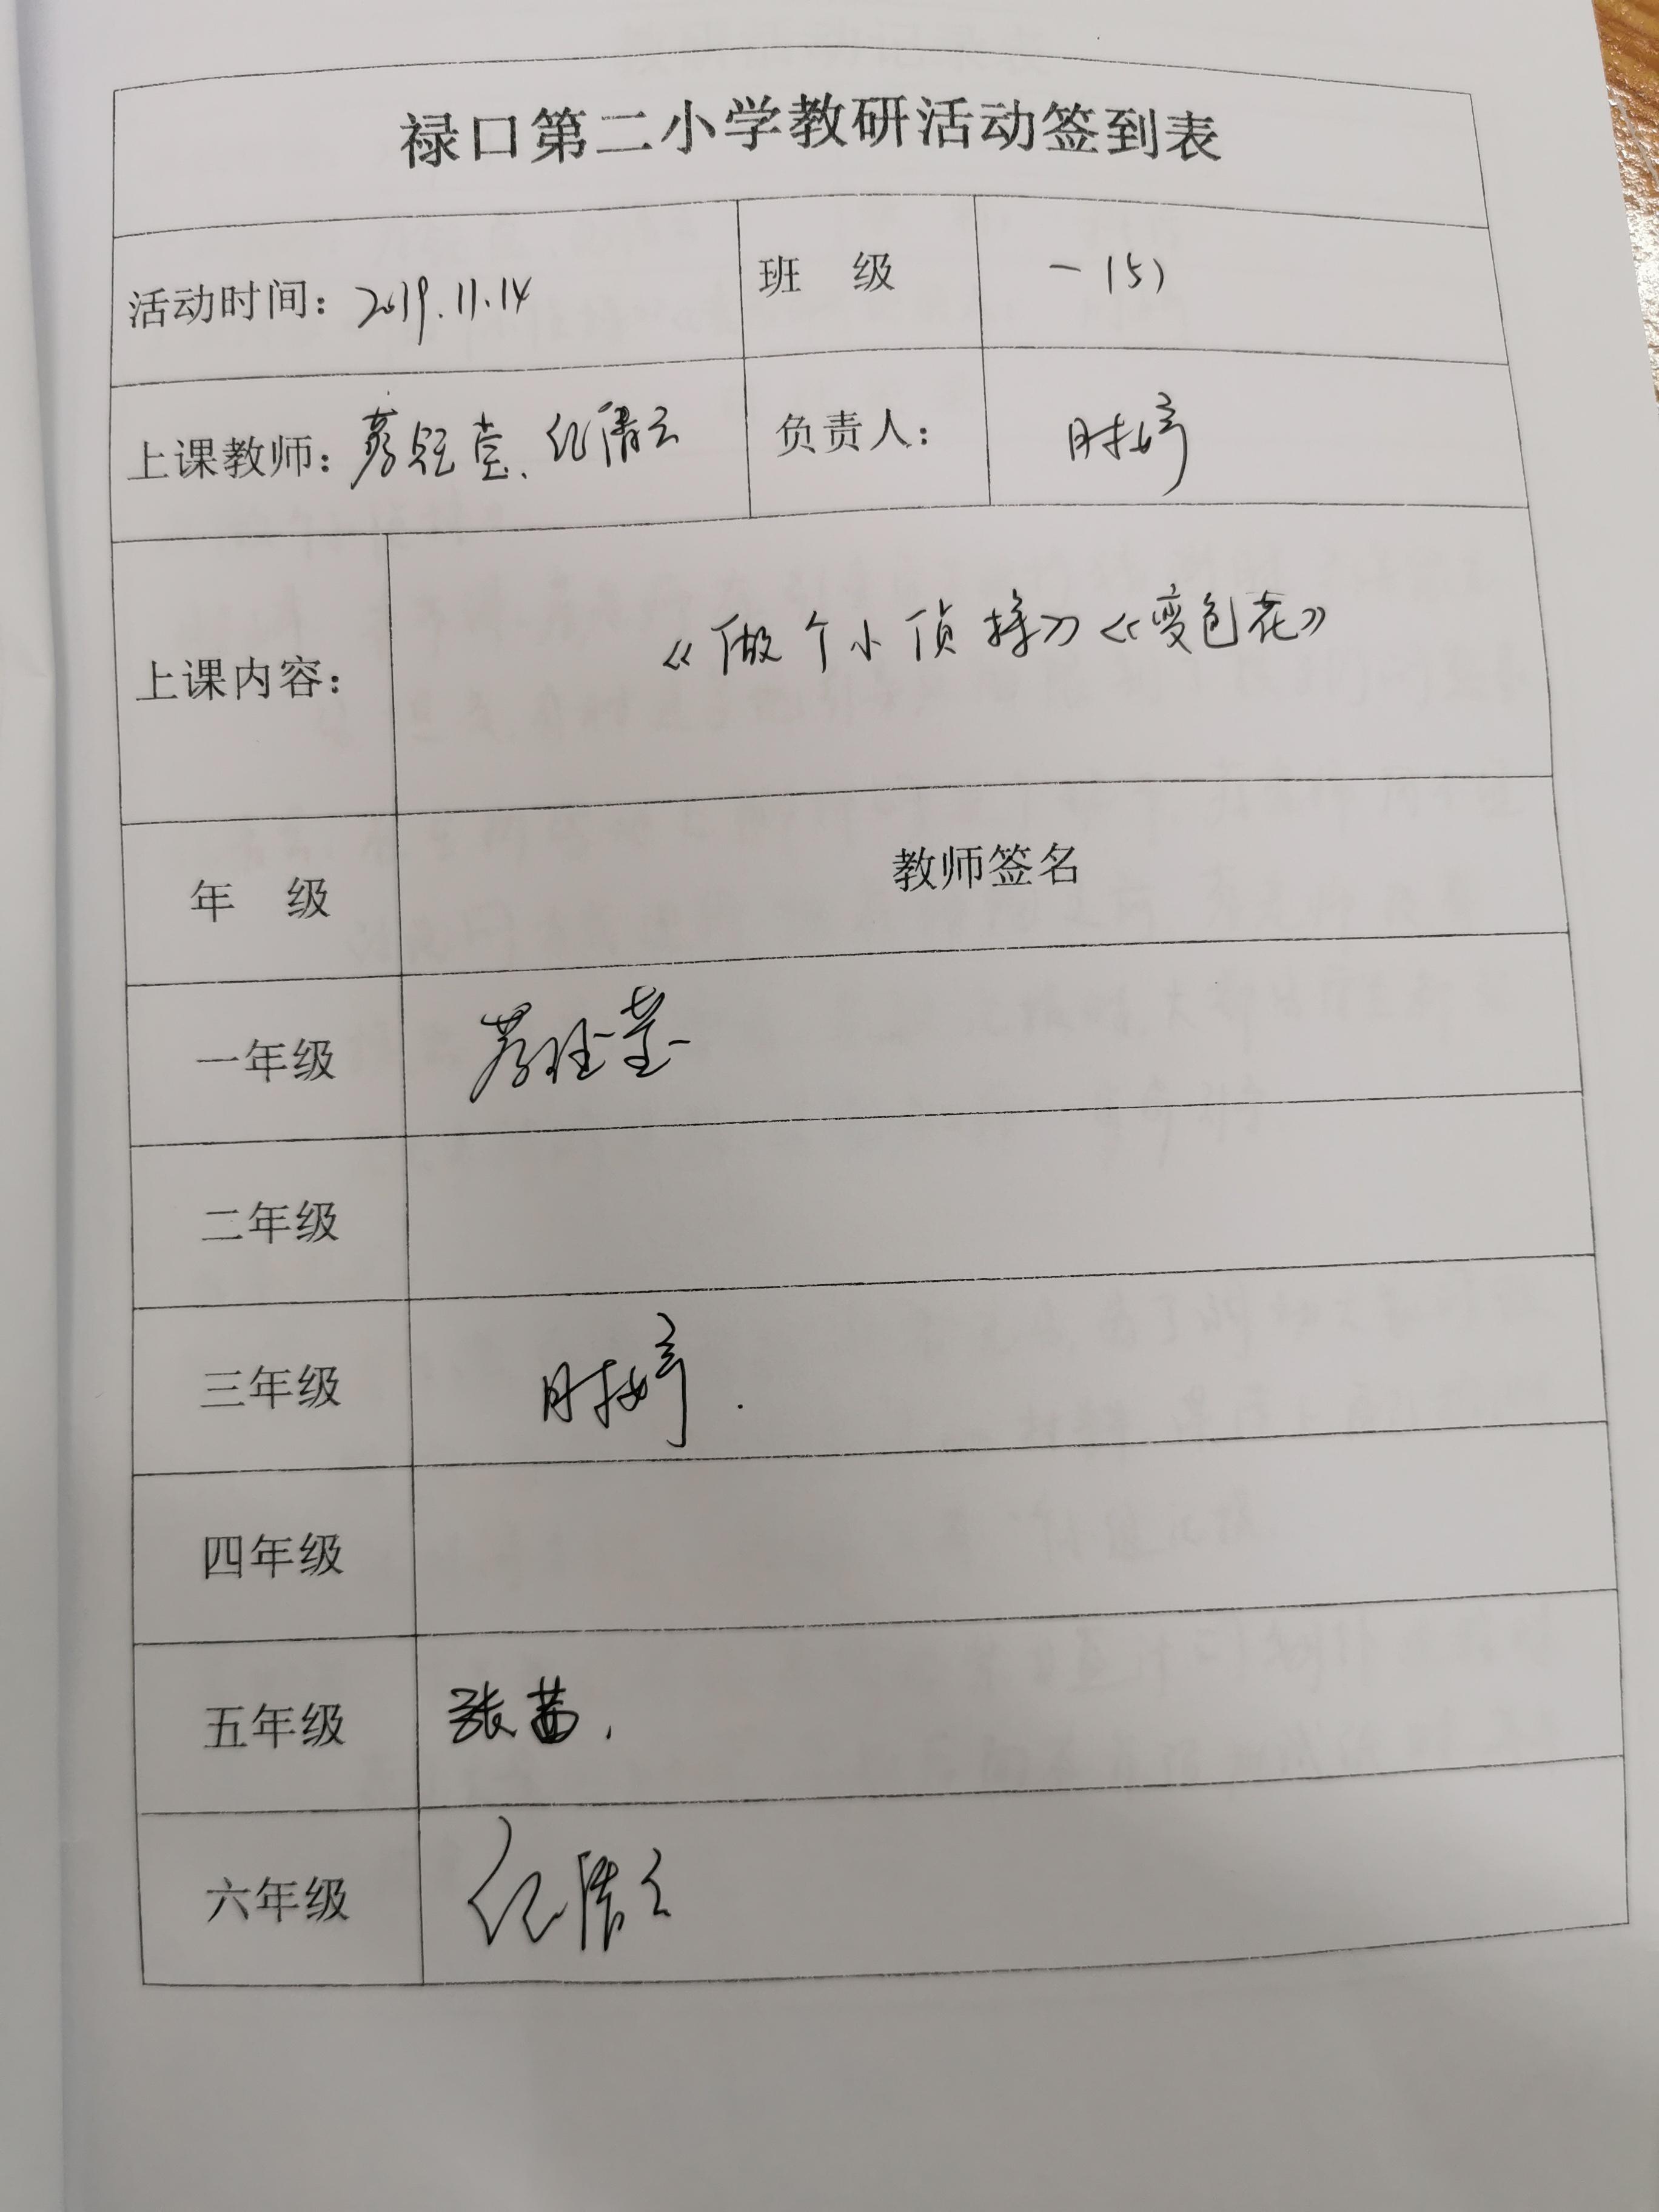 禄口第二小学教研活动签到表
活动时间：2019.11.14 班 级 一（5）
上课教师： 纪倩云 负责人： 时婷
上课内容： 《做个小侦探》《变色花》
年 级 教师签名
一年级
二年级
三年级 时婷.
四年级
五年级 张茜.
六年级 纪倩云